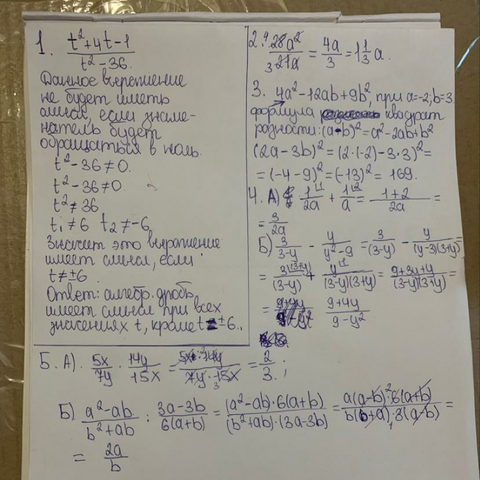 1. (t²+4t-1)/(t²-36)
Данное выражение
не будет иметь
смысл, если знаме-
натель будет
обращаться в ноль.
t²-36≠0.
t²-36≠0
t²≠36
t₁≠6 t₂≠-6
Значит это выражение
имеет смысл, если
t≠±6
Ответ: алгебр. дробь
имеет смысл при всех
значениях t, кроме t=±6.
2. 28a²/21a = 4a/3 = 1 1/3 a.
3. 4a²-12ab+9b², при a=-2; b=3
формула квадрат
разности: (a-b)²=a²-2ab+b²
(2a-3b)²=(2·(-2)-3·3)²=
=(-4-9)²=(-13)²=169.
4. А) 1/2a + 1/a = (1+2)/2a =
= 3/2a
Б) 3/(3-y) - y/(y²-9) = 3/(3-y) - y/((y-3)(3+y)) =
= 3(3+y)/(3-y) + y/((3-y)(3+y)) = (9+3y+y)/((3-y)(3+y)) =
= (9+4y)/(9-y²)
Б. А). 5x/7y · 14y/15x = (5x·14y)/(7y·15x) = 2/3.;
Б) (a²-ab)/(b²+ab) : (3a-3b)/(6(a+b)) = ((a²-ab)·6(a+b))/((b²+ab)·(3a-3b)) = (a(a-b)·6(a+b))/(b(b+a)·3(a-b)) =
= 2a/b